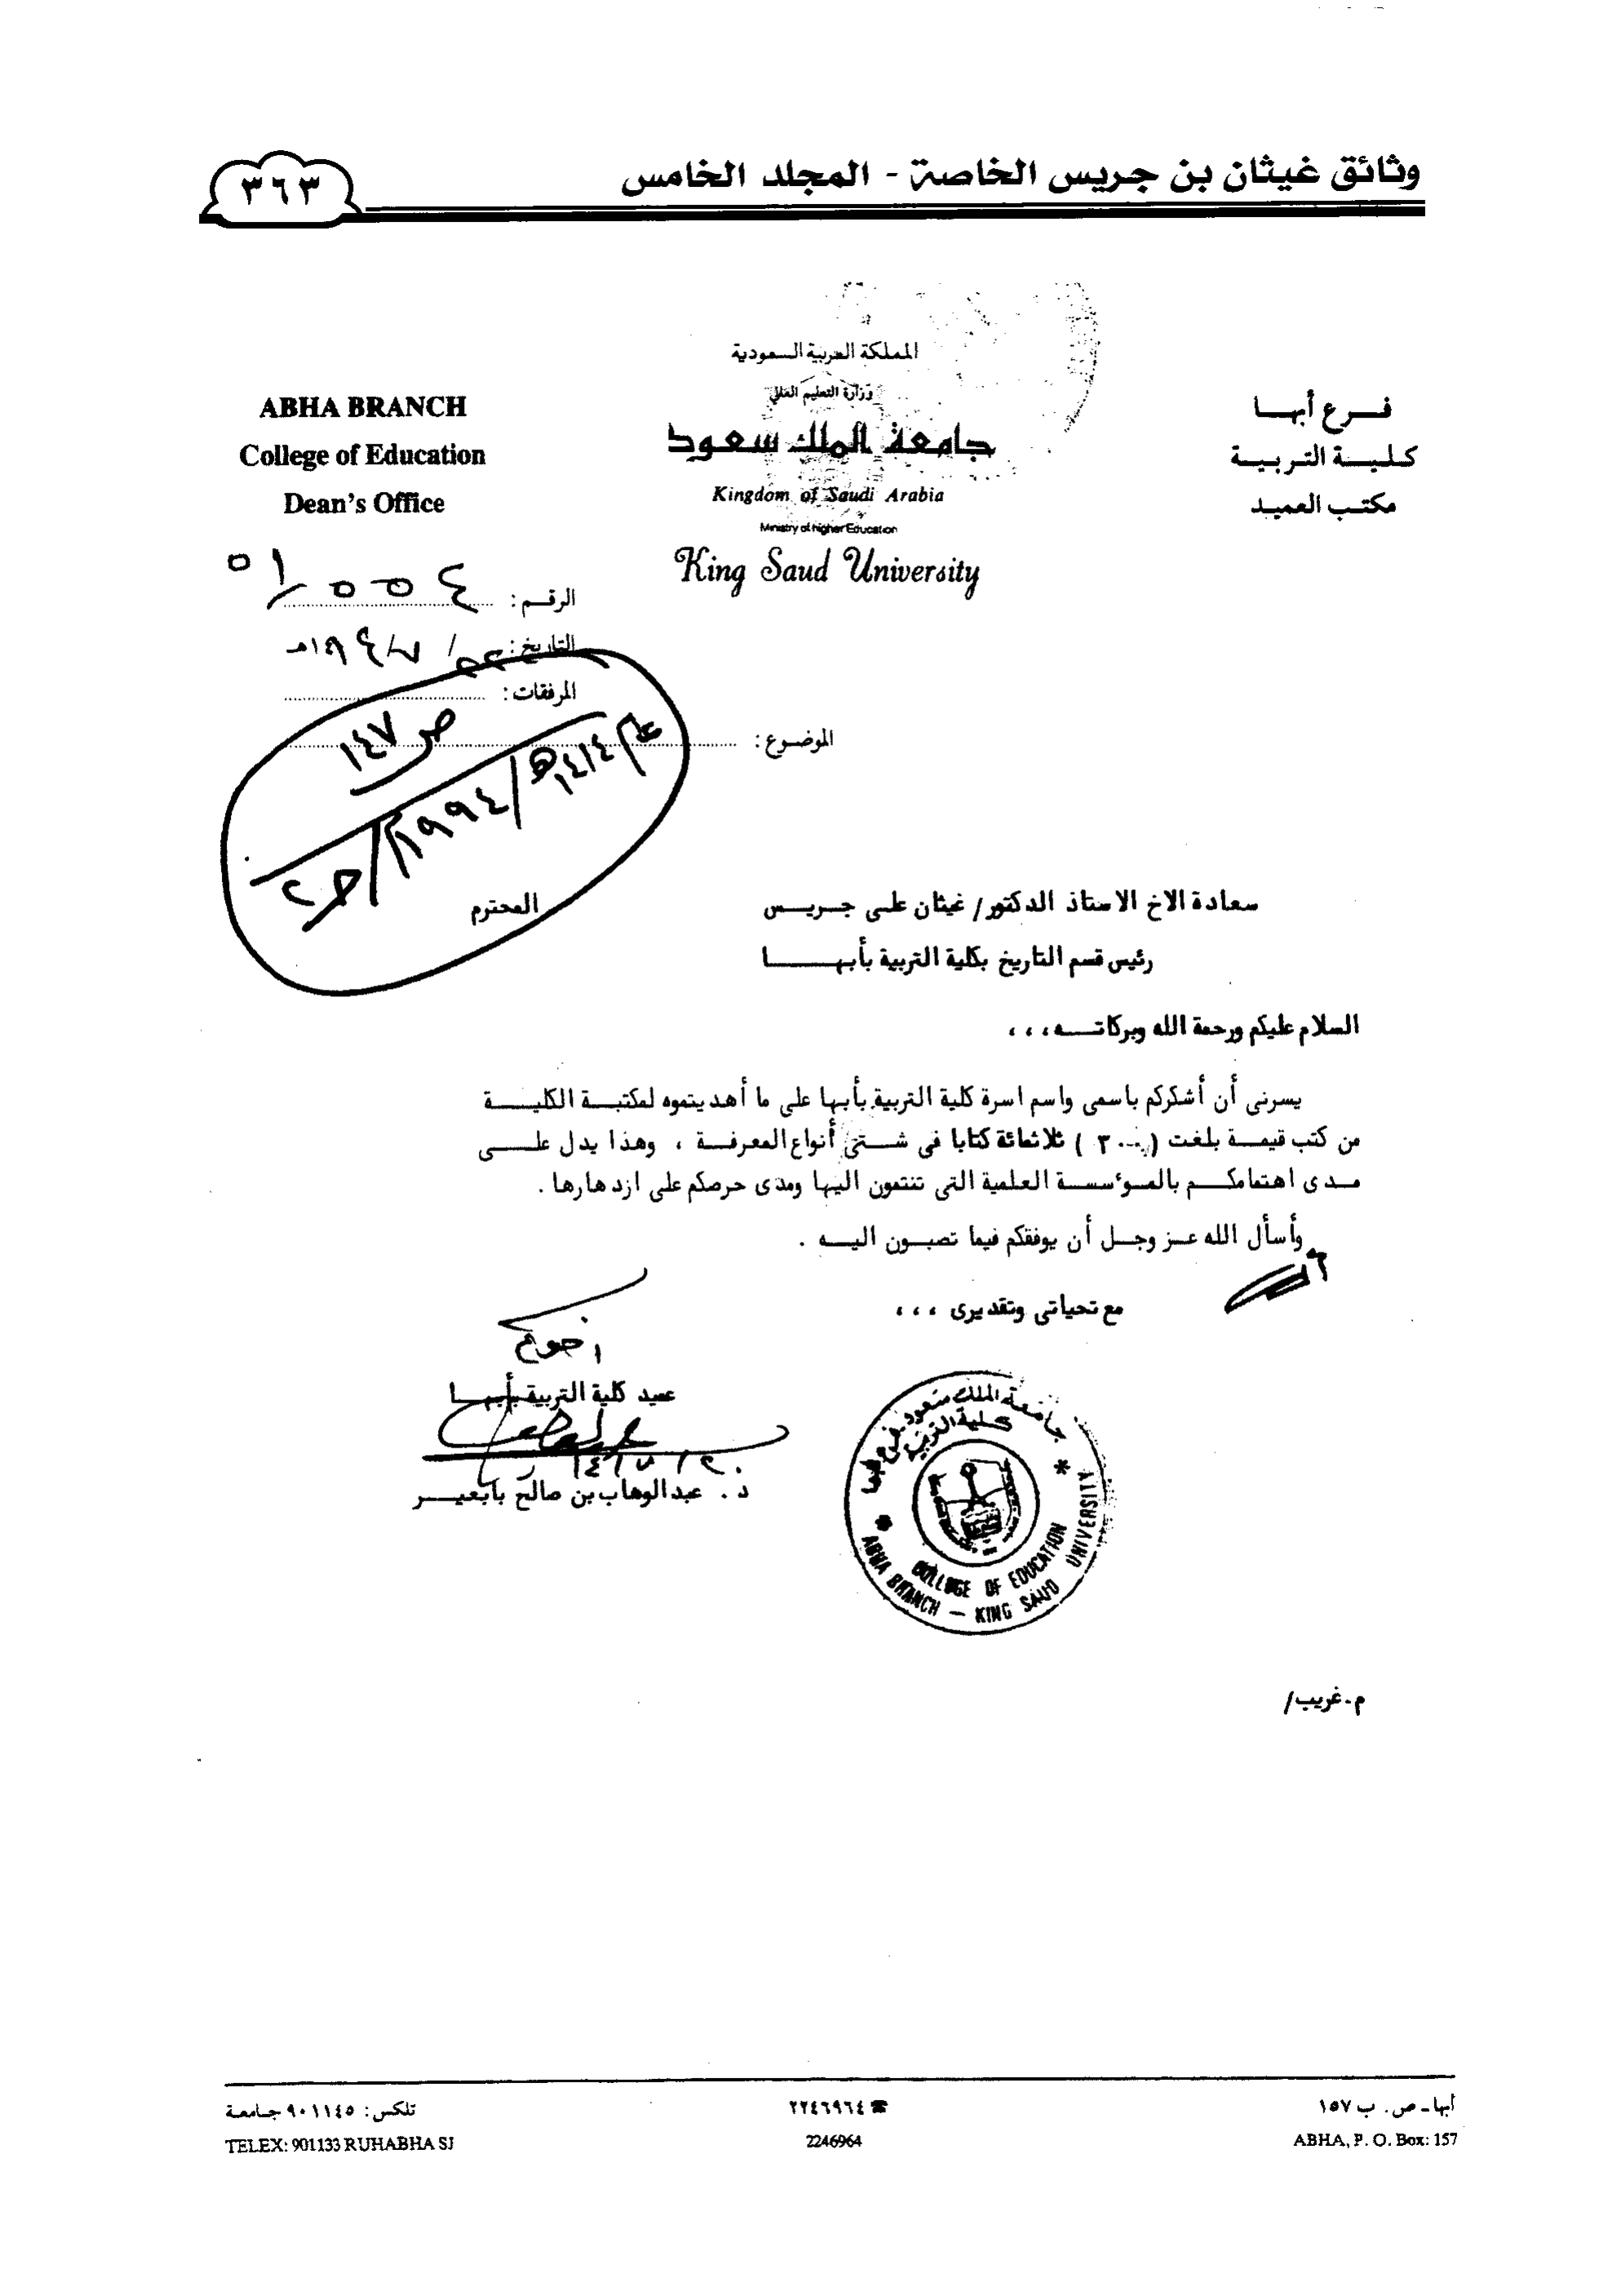 وثائق غيثان بن جريس الخاصة - المجلد الخامس
٣٦٣
المملكة العربية السعودية
وزارة التعليم العالي
جامعة الملك سعود
Kingdom of Saudi Arabia
Ministry of higher Education
King Saud University
فرع أبها
كلية التربية
مكتب العميد
ABHA BRANCH
College of Education
Dean's Office
الرقم:
التاريخ:
المرفقات:
الموضوع:
ص ١٤٧
١٤١٤هـ/١٩٩٤م
سعادة الاخ الاستاذ الدكتور/ غيثان على جريس المحترم
رئيس قسم التاريخ بكلية التربية بأبها
السلام عليكم ورحمة الله وبركاته،،،
يسرنى أن أشكركم باسمى واسم اسرة كلية التربية بأبها على ما أهديتموه لمكتبة الكلية
من كتب قيمة بلغت (٣٠٠) ثلاثمائة كتابا فى شتى أنواع المعرفة ، وهذا يدل على
مدى اهتمامكم بالمؤسسة العلمية التى تنتمون اليها ومدى حرصكم على ازدهارها .
وأسأل الله عز وجل أن يوفقكم فيما تصبون اليه .
مع تحياتى وتقديرى ،،،
اخوكم
عميد كلية التربية بأبها
د . عبدالوهاب بن صالح بابعير
جامعة الملك سعود فرع أبها
كلية التربية
COLLEGE OF EDUCATION
ABHA BRANCH — KING SAUD UNIVERSITY
م.غريب/
أبها ـ ص. ب ١٥٧
ABHA, P. O. Box: 157
☎ ٢٢٤٦٩٦٤
2246964
تلكس: ٩٠١١٤٥ جامعة
TELEX: 901133 RUHABHA SJ